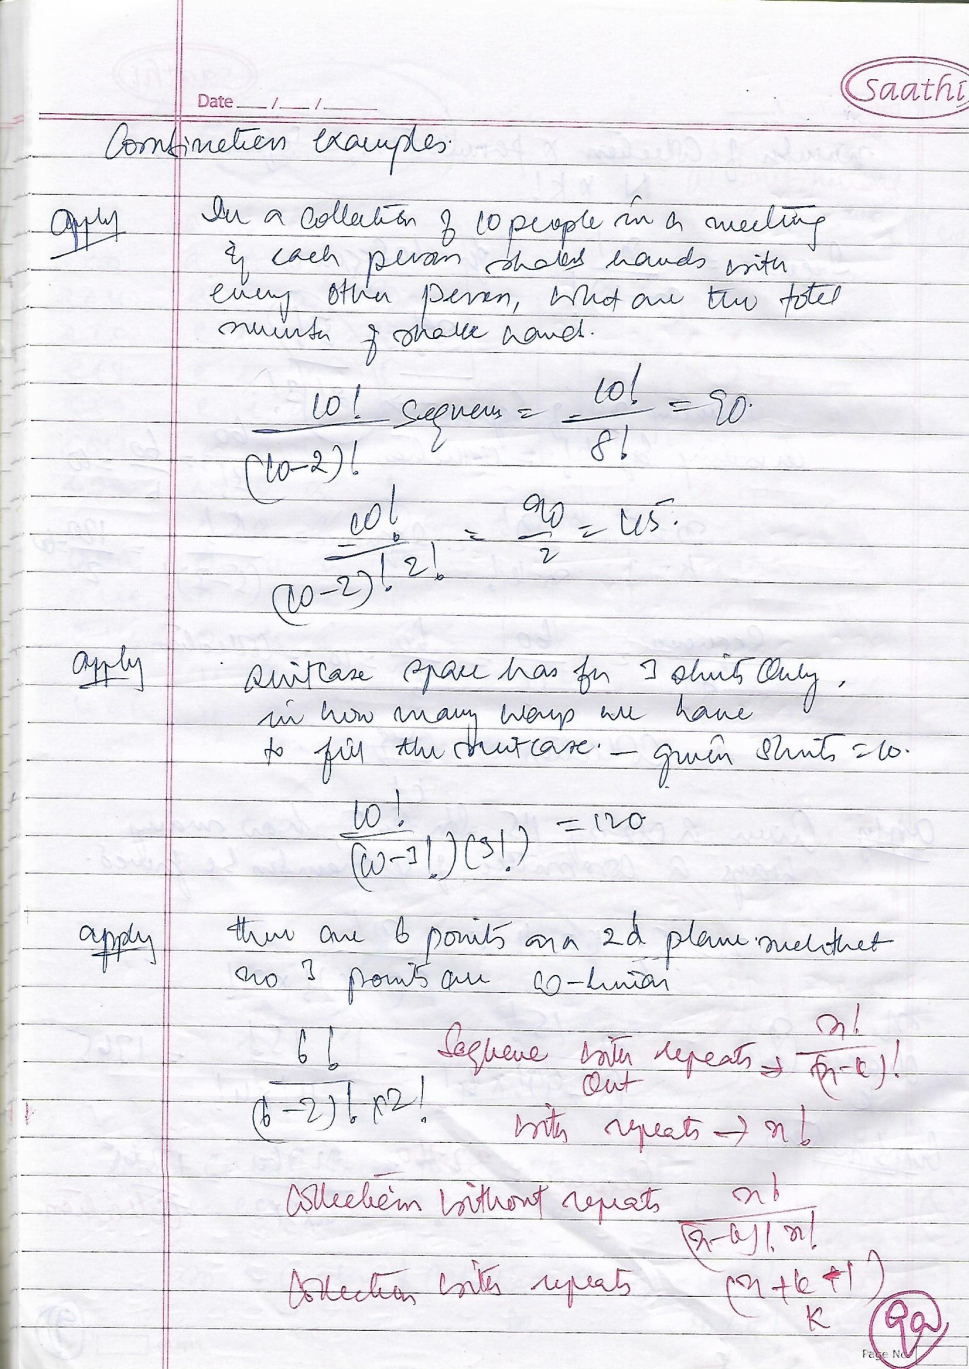 Saathi
Date ___/___/_____
Combination examples.
apply In a collection of 10 people in a meeting
if each person shakes hands with
every other person, what are the total
number of shake hand.
10! / (10-2)! sequences = 10! / 8! = 90.
10! / (10-2)! 2! = 90 / 2 = 45.
apply suitcase space has for 3 shirts only,
in how many ways we have
to fill the suitcase. – given shirts = 10.
10! / (10-3!)(3!) = 120
apply there are 6 points on a 2d plane such that
no 3 points are co-linear
6! / (6-2)! x2!
Sequence with out repeats → n! / (n-k)!
with repeats → n!
Collection without repeats n! / (n-k)! n!
Collection with repeats (n+k+1) k
Page No.